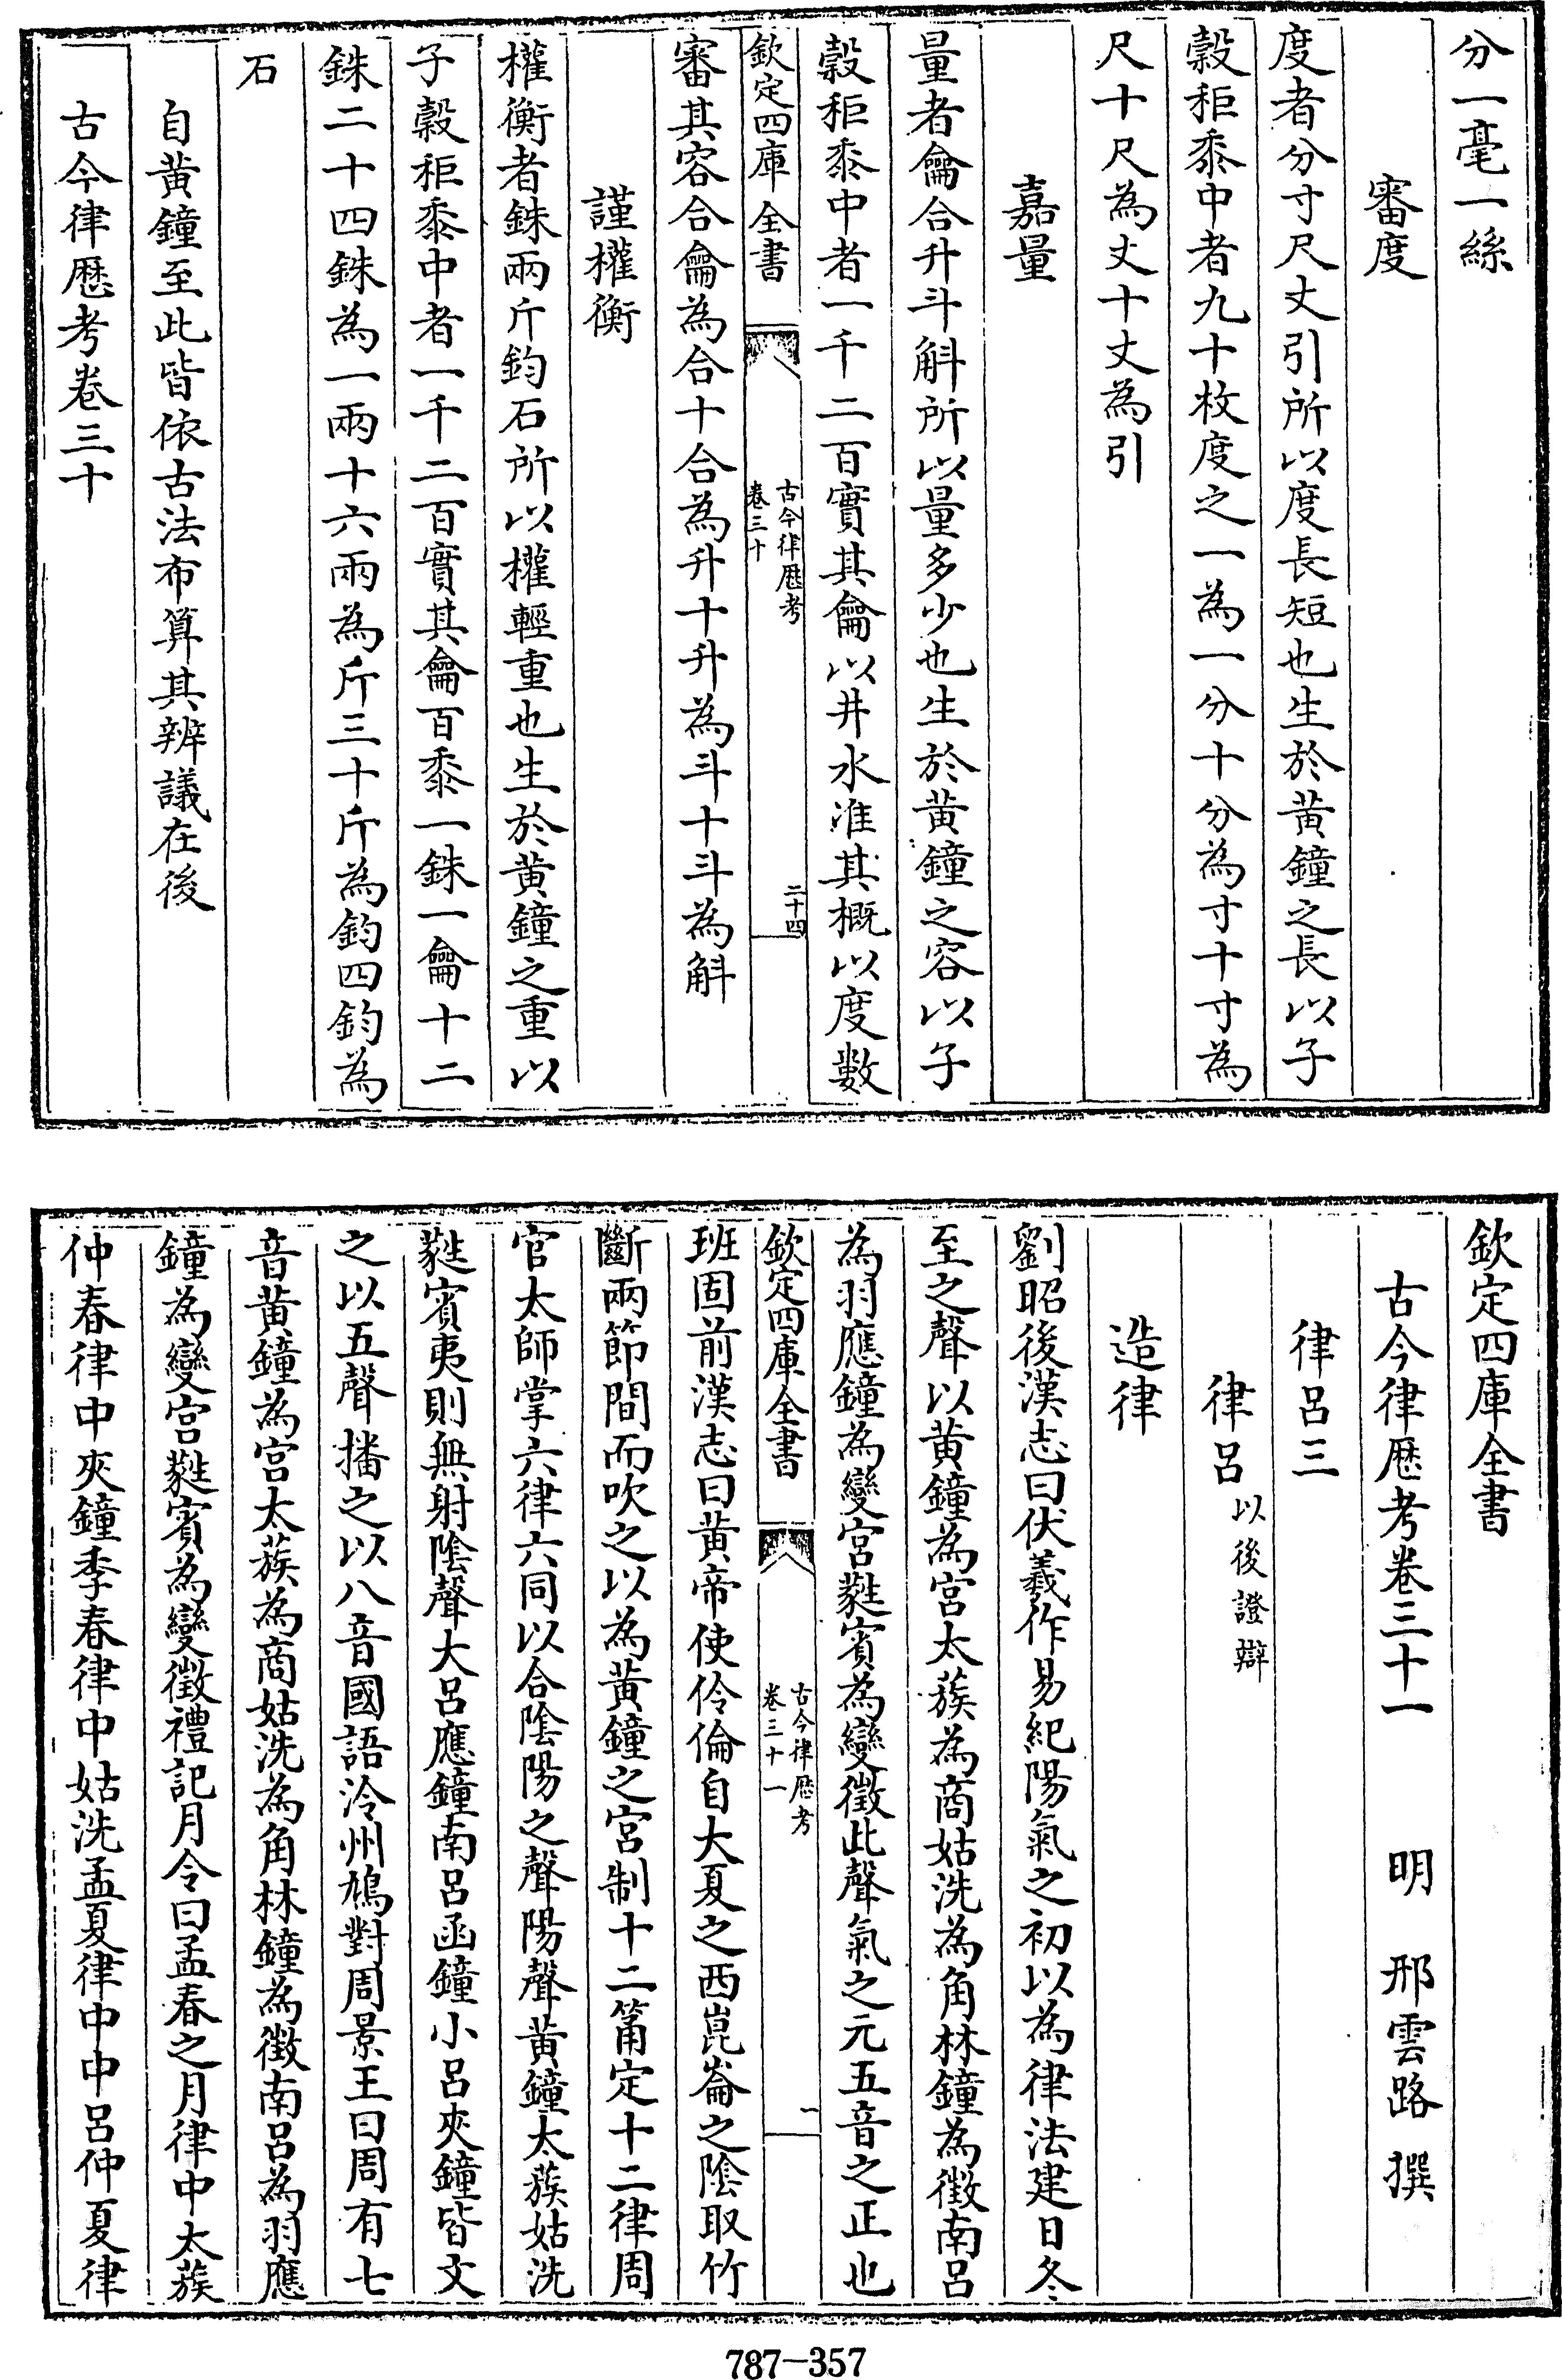 分一毫一絲
審度
度者分寸尺丈引所以度長短也生於黄鐘之長以子
穀秬黍中者九十枚度之一為一分十分為寸十寸為
尺十尺為丈十丈為引
嘉量
量者龠合升斗斛所以量多少也生於黄鐘之容以子
穀秬黍中者一千二百實其龠以井水准其概以度數
欽定四庫全書
古今律歷考
卷三十
二十四
審其容合龠為合十合為升十升為斗十斗為斛
謹權衡
權衡者銖兩斤鈞石所以權輕重也生於黄鐘之重以
子穀秬黍中者一千二百實其龠百黍一銖一龠十二
銖二十四銖為一兩十六兩為斤三十斤為鈞四鈞為
石
自黄鐘至此皆依古法布算其辨議在後
古今律歷考卷三十
欽定四庫全書
古今律歷考卷三十一 明 邢雲路 撰
律呂三
律呂以後證辯
造律
劉昭後漢志曰伏羲作易紀陽氣之初以為律法建日冬
至之聲以黄鐘為宫太蔟為商姑洗為角林鐘為徵南呂
為羽應鐘為變宫蕤賓為變徵此聲氣之元五音之正也
欽定四庫全書
古今律歷考
卷三十一
一
班固前漢志曰黄帝使伶倫自大夏之西崑崙之陰取竹
斷兩節間而吹之以為黄鐘之宫制十二筩定十二律周
官太師掌六律六同以合陰陽之聲陽聲黄鐘太蔟姑洗
蕤賓夷則無射陰聲大呂應鐘南呂函鐘小呂夾鐘皆文
之以五聲播之以八音國語泠州鳩對周景王曰周有七
音黄鐘為宫太蔟為商姑洗為角林鐘為徵南呂為羽應
鐘為變宫蕤賓為變徵禮記月令曰孟春之月律中太蔟
仲春律中夾鐘季春律中姑洗孟夏律中中呂仲夏律
787-357